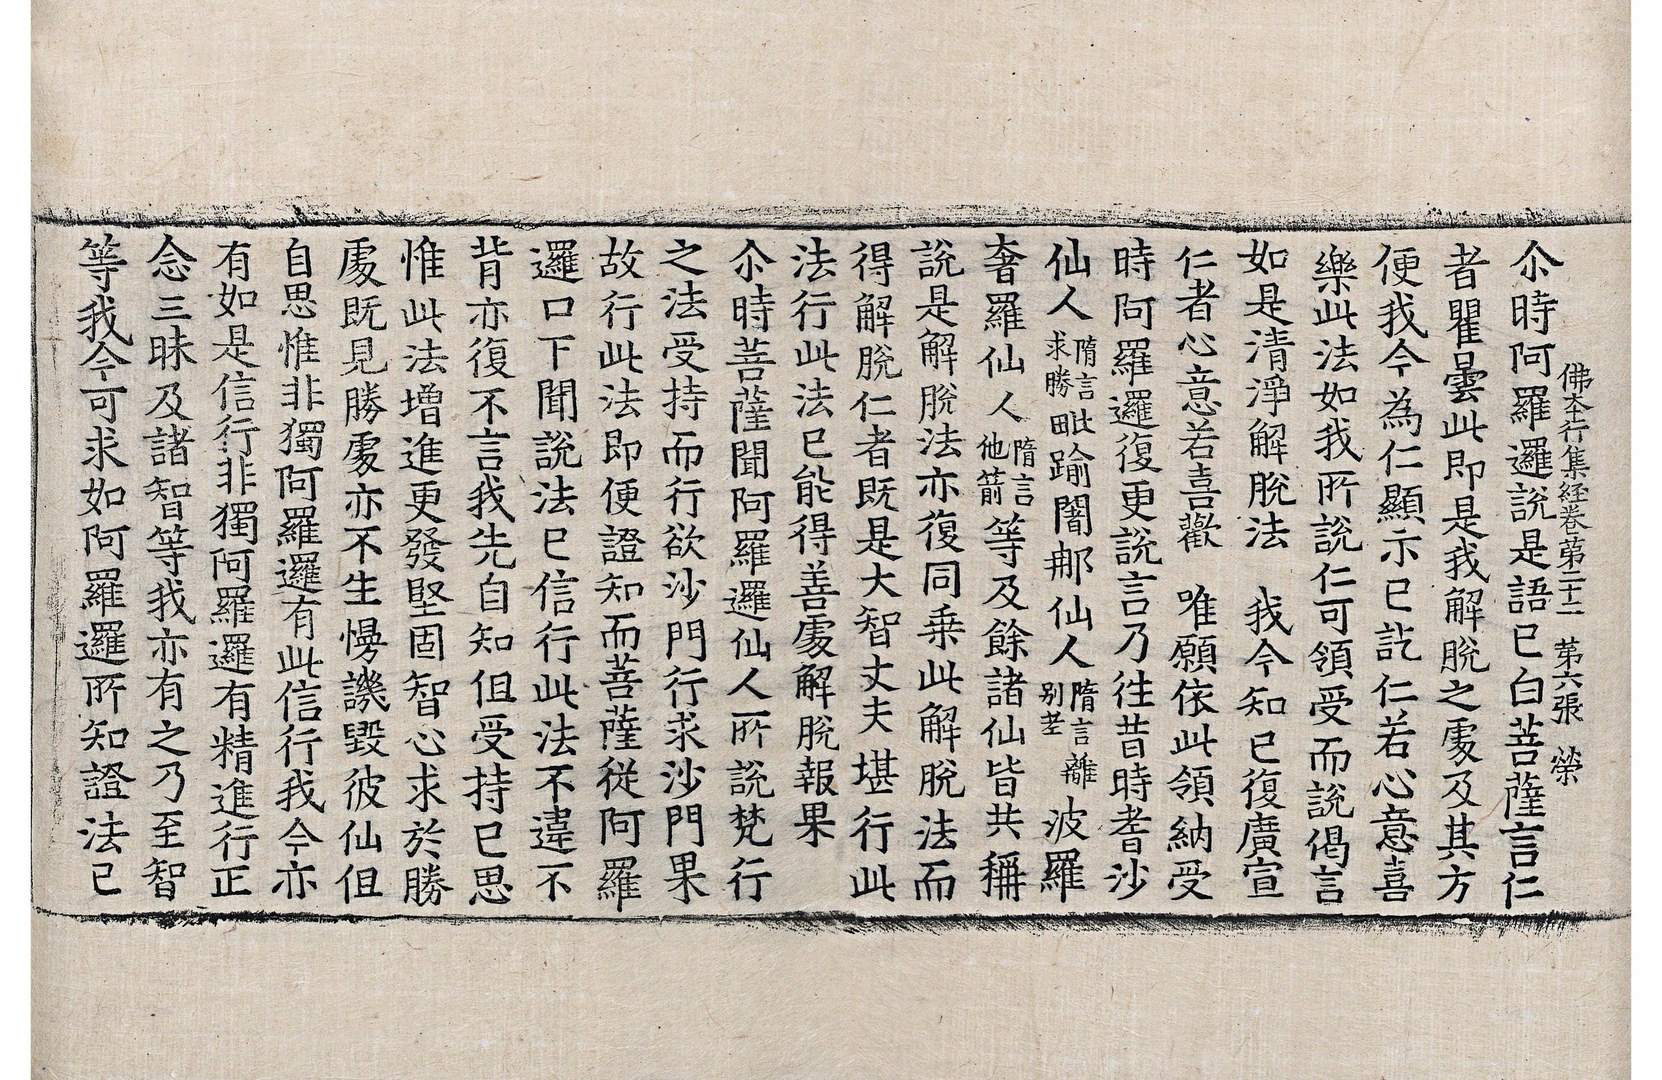 佛本行集経卷苐二十二　苐六張　榮
尒時阿羅邏說是語已白菩薩言仁
者瞿曇此即是我解脫之處及其方
便我今為仁顯示已訖仁若心意喜
樂此法如我所說仁可領受而說偈言
如是清淨解脫法　我今知已復廣宣
仁者心意若喜歡　唯願依此領納受
時阿羅邏復更說言乃往昔時耆沙
仙人隋言求勝毗踰闍那仙人隋言離別老波羅
奢羅仙人隋言他箭等及餘諸仙皆共稱
說是解脫法亦復同乗此解脫法而
得解脫仁者既是大智丈夫堪行此
法行此法已能得善處解脫報果
尒時菩薩聞阿羅邏仙人所說梵行
之法受持而行欲沙門行求沙門果
故行此法即便證知而菩薩從阿羅
邏口下聞說法已信行此法不違不
背亦復不言我先自知但受持已思
惟此法增進更發堅固智心求於勝
處既見勝處亦不生慢譏毀彼仙但
自思惟非獨阿羅邏有此信行我今亦
有如是信行非獨阿羅邏有精進行正
念三昧及諸智等我亦有之乃至智
等我今可求如阿羅邏所知證法已